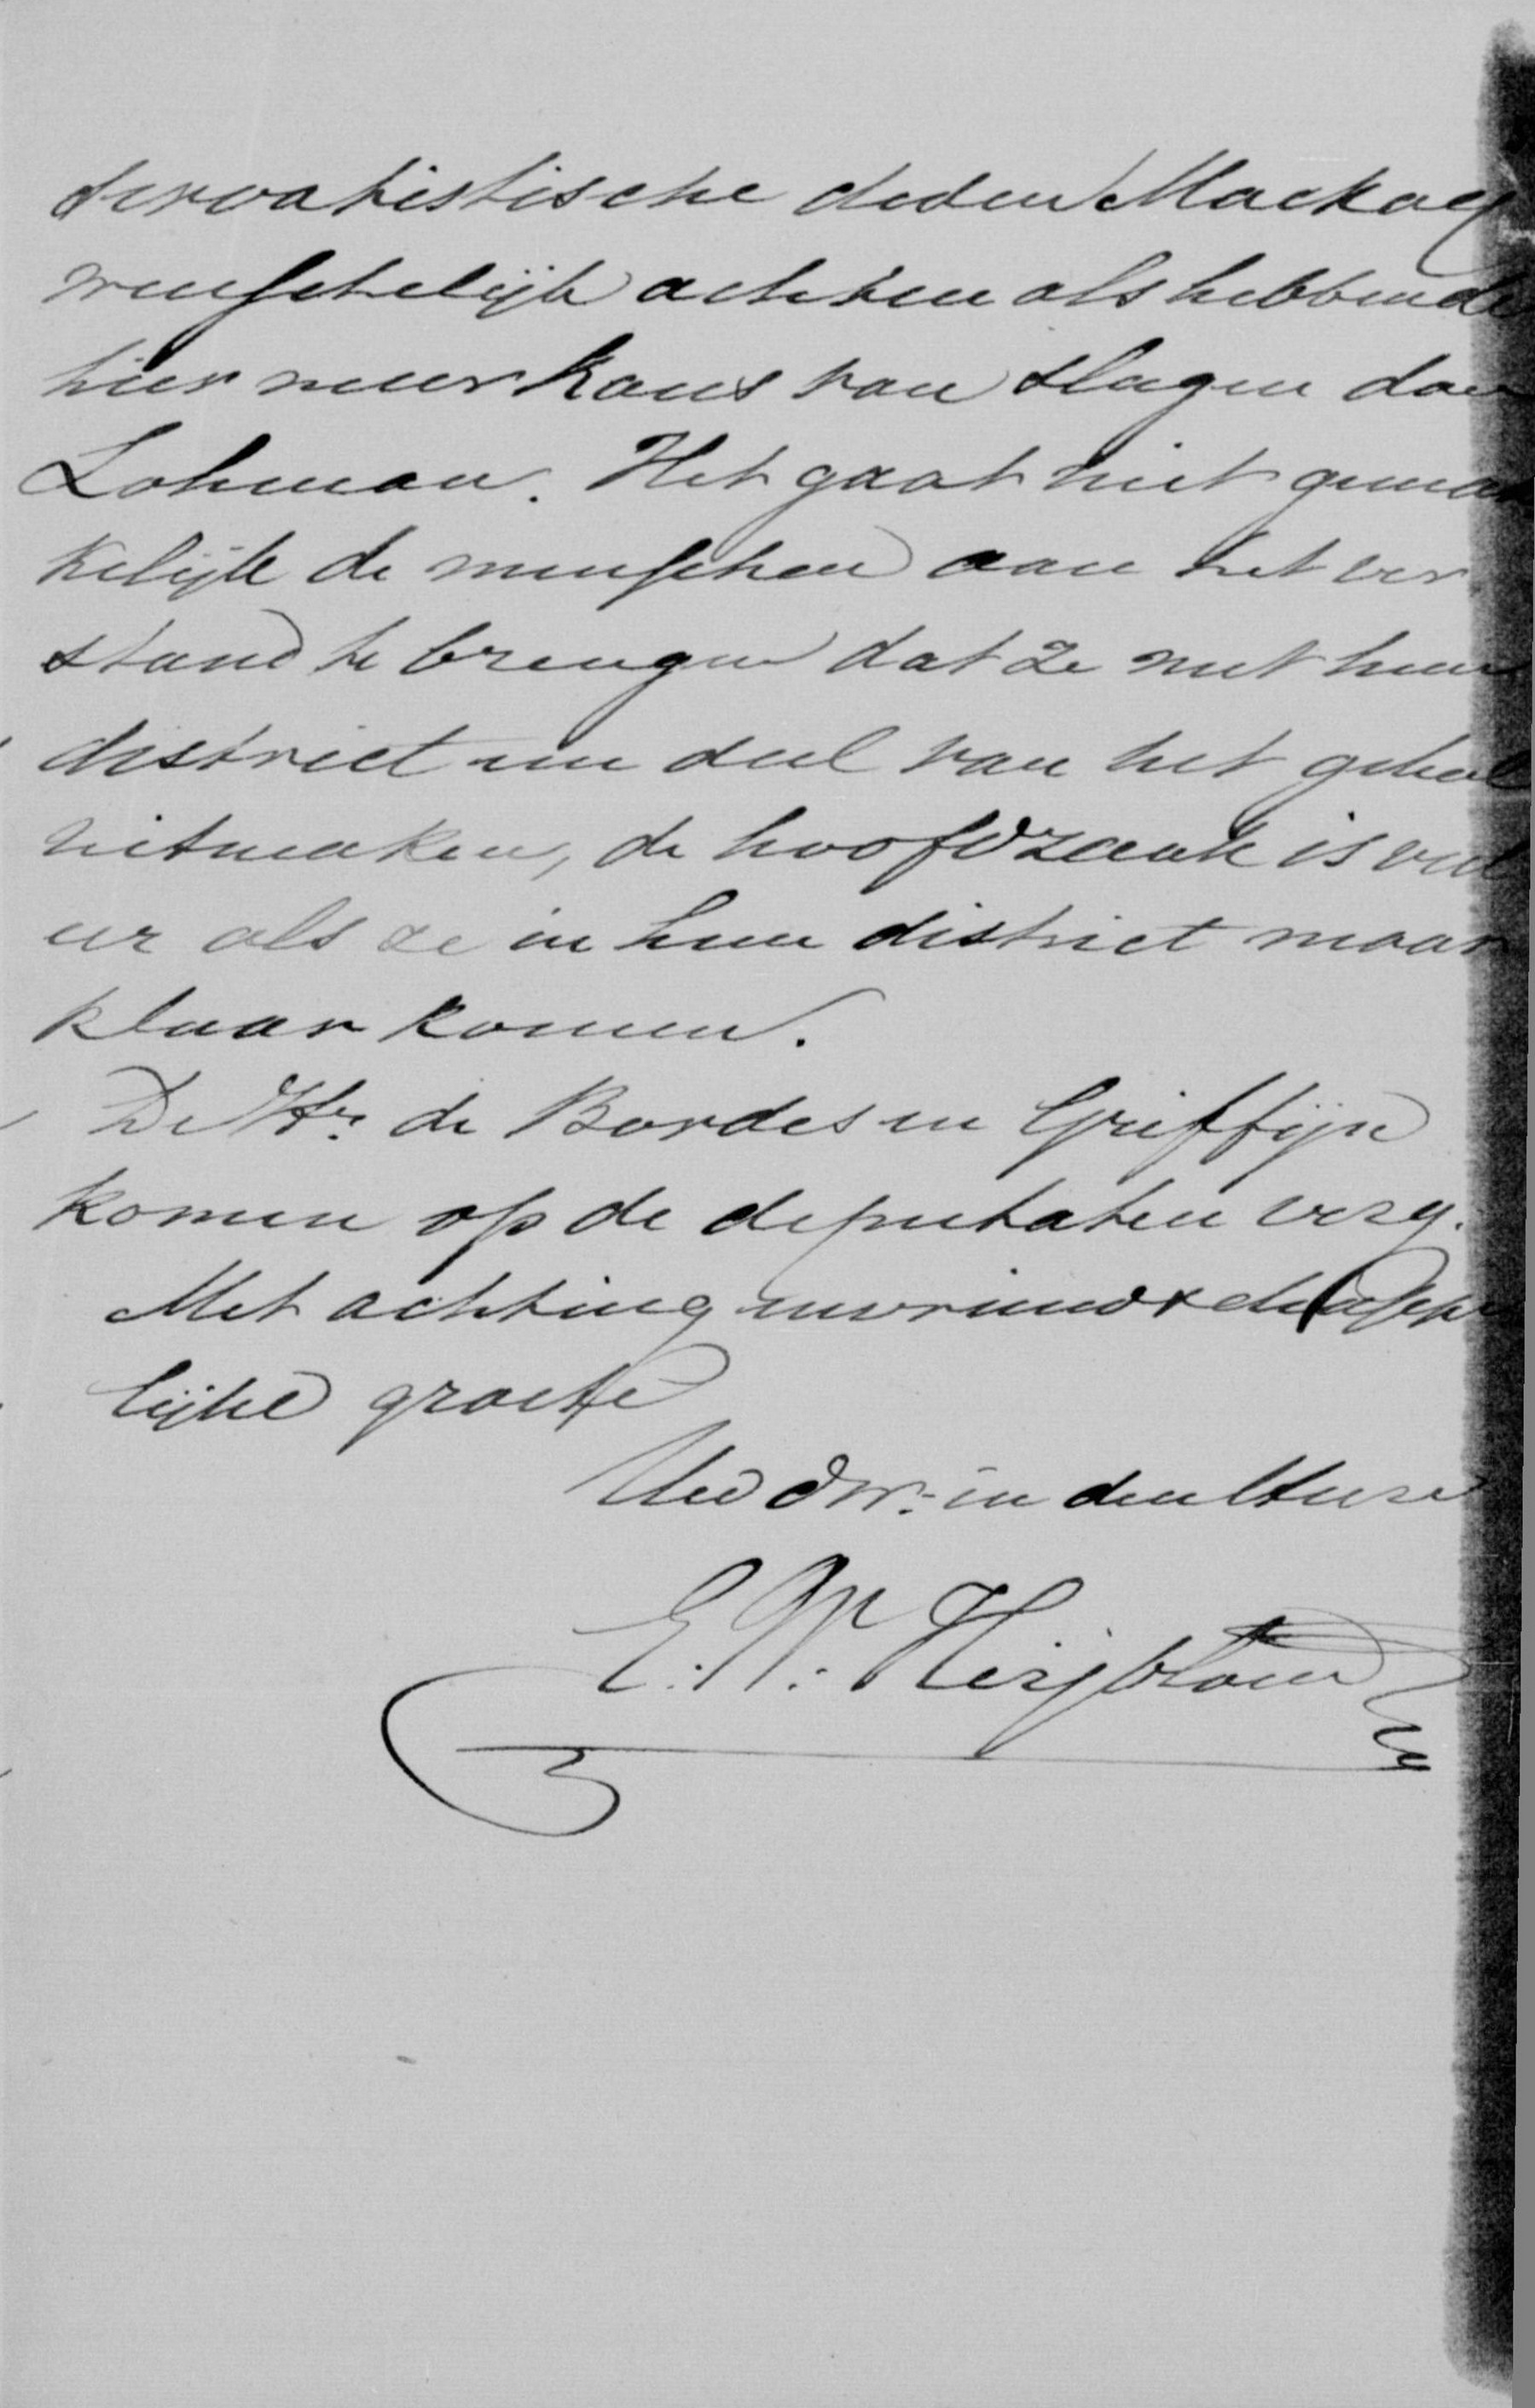 servatistische deden Mackay
wenschelijk achten als hebbende
hier meer kans van slagen dan
Lohman. Het gaat niet gemak
kelijk de menschen aan het ver
stand te brengen dat ze met hun
district een deel van het geheel
uitmaken, de hoofdzaak is veel
eer als ze in hun district maar
klaar komen.
De Hrn de Bordes en Griffijn
komen op de deputaten verg.
Met achting en vriendschappe
lijke groete
Uwd dw: in den Heere
E. W. Heijblom